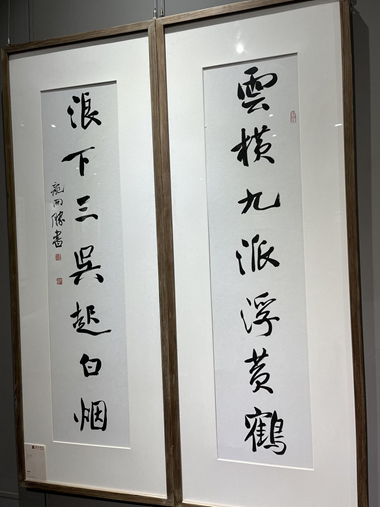 雲橫九派浮黄鶴
浪下三吳起白烟